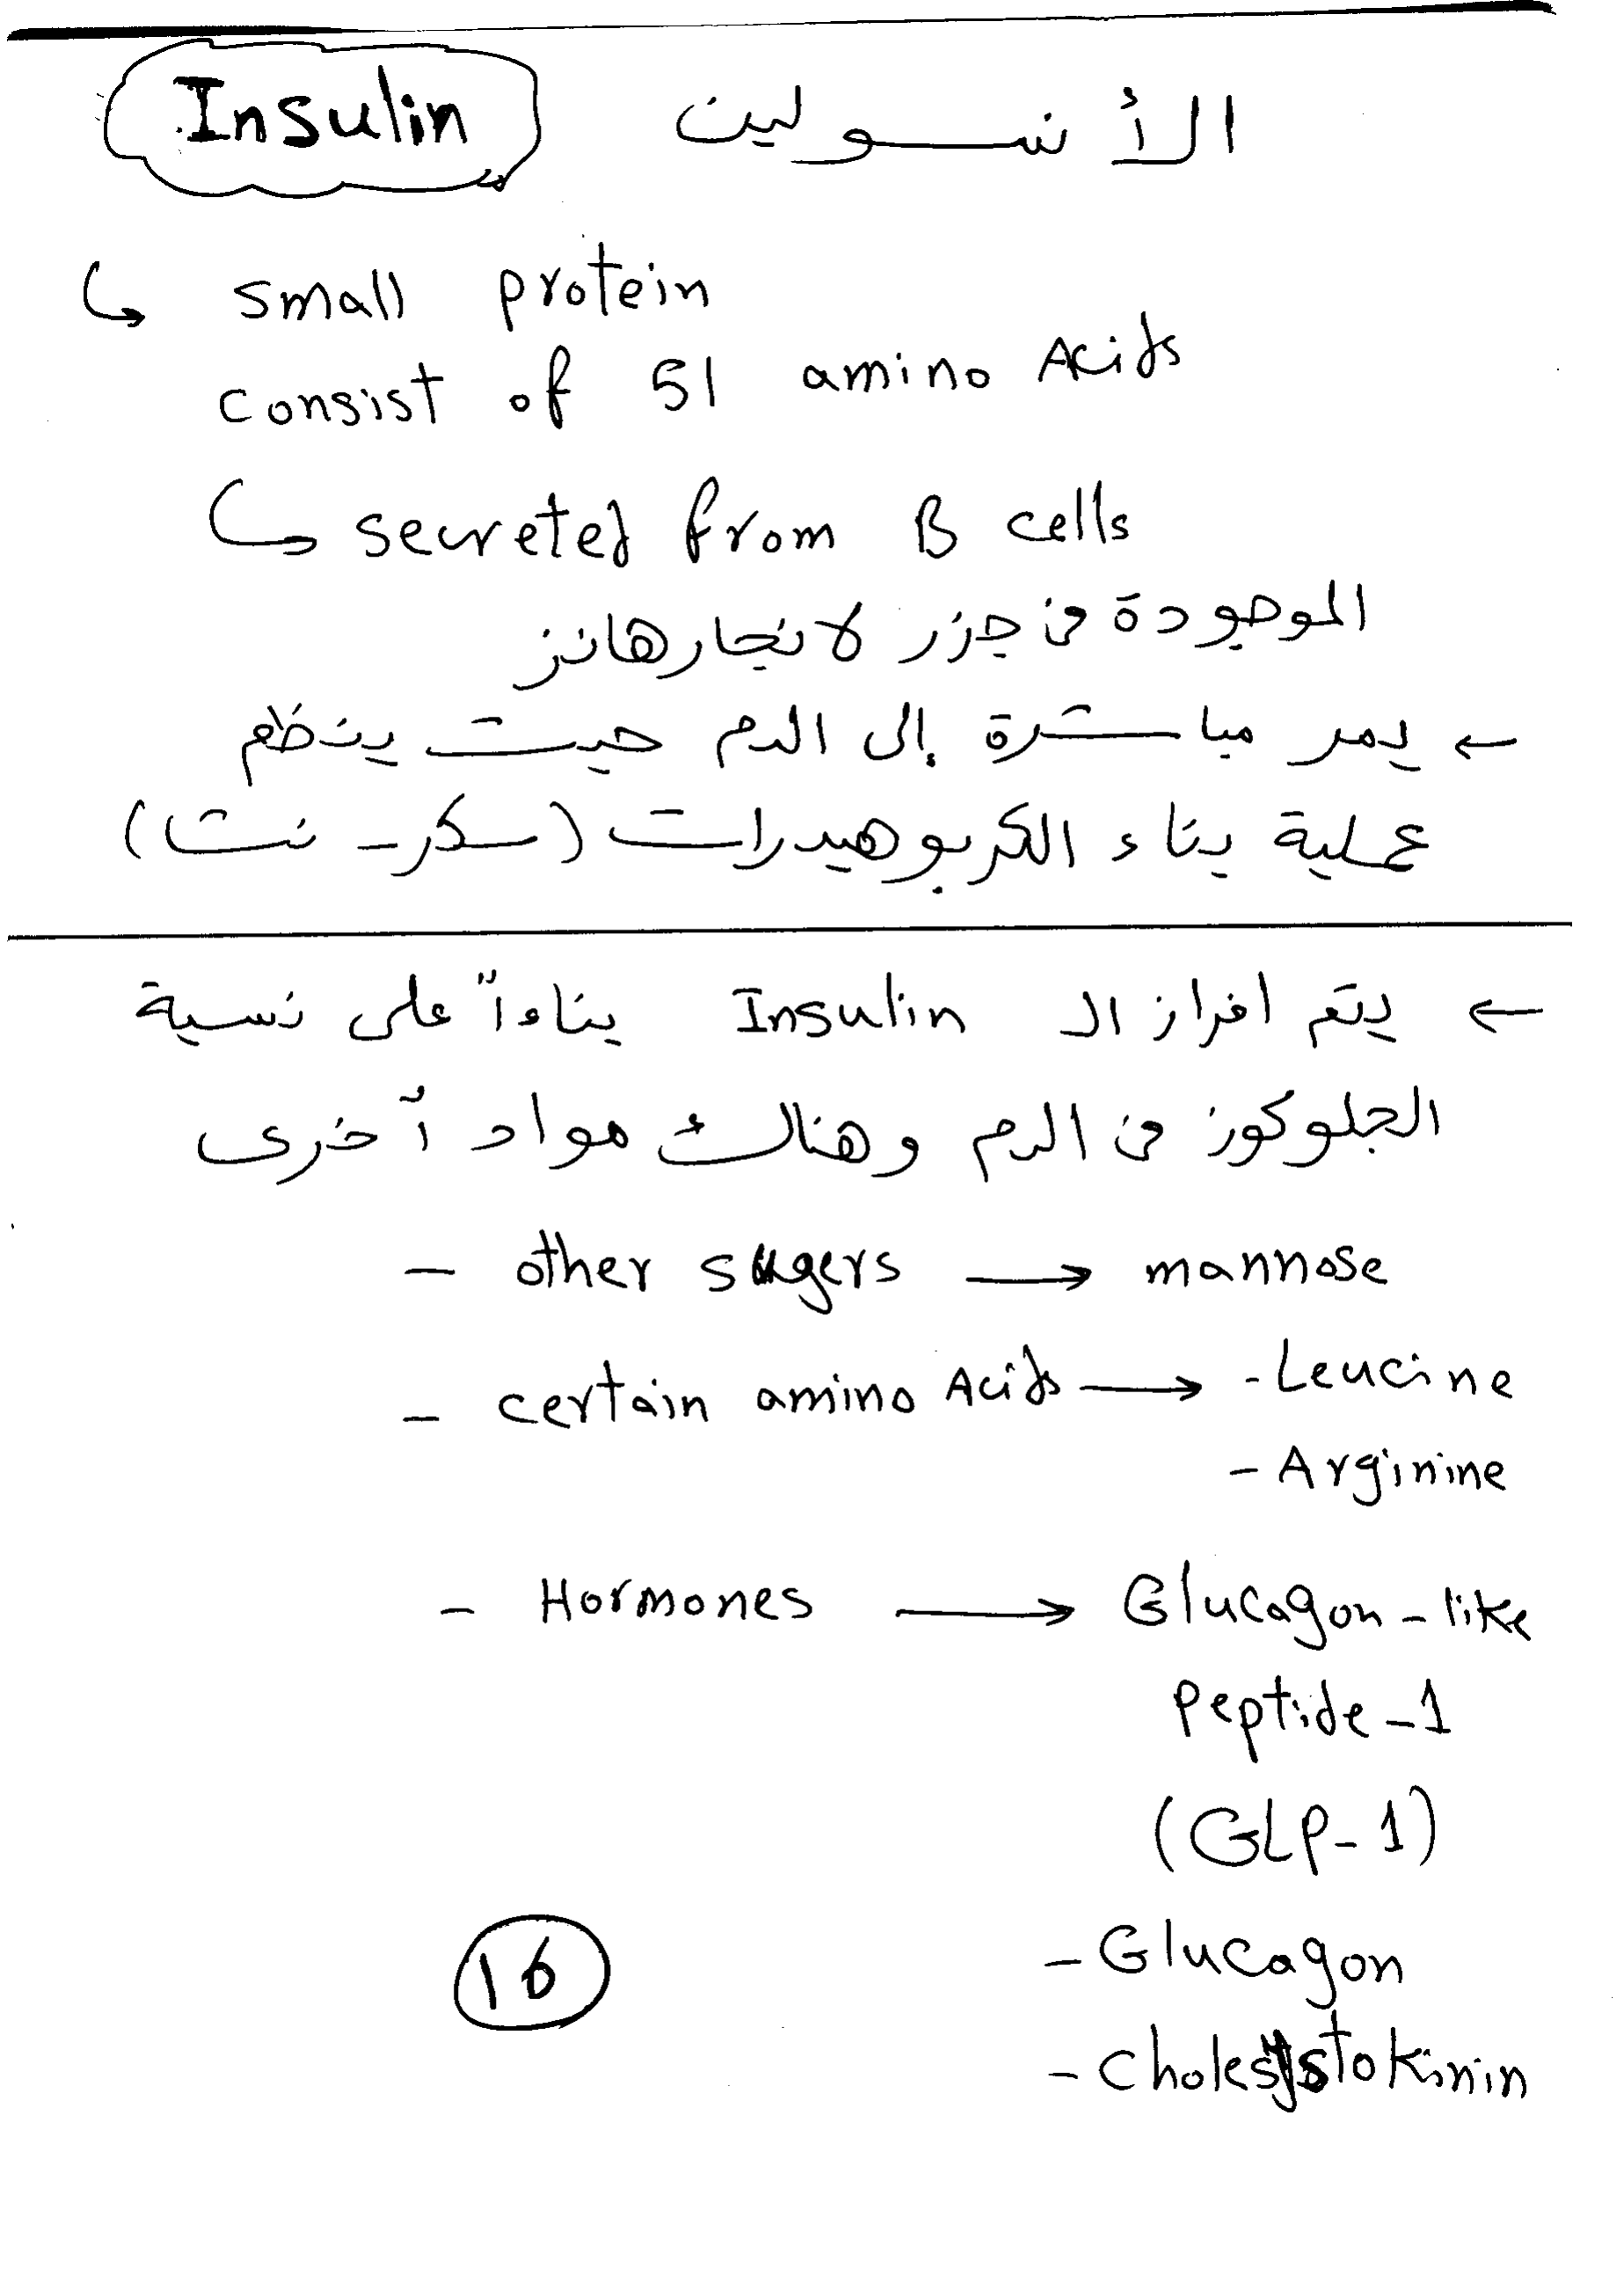 Insulin الأنسولين
small protein
consist of 51 amino Acids
secreted from B cells
الموجودة في جزر لانجارهانز
← يمر مباشرة إلى الدم حيث ينظم
عملية بناء الكربوهيدرات (سكر - نشا)
← يتم افراز الـ Insulin بناءاً على نسبة
الجلوكوز في الدم وهناك مواد أخرى
- other sugers → mannose
- certain amino Acids → - Leucine
- Arginine
- Hormones → Glucagon-like
peptide-1
(GLP-1)
- Glucagon
16
- cholesystokinin